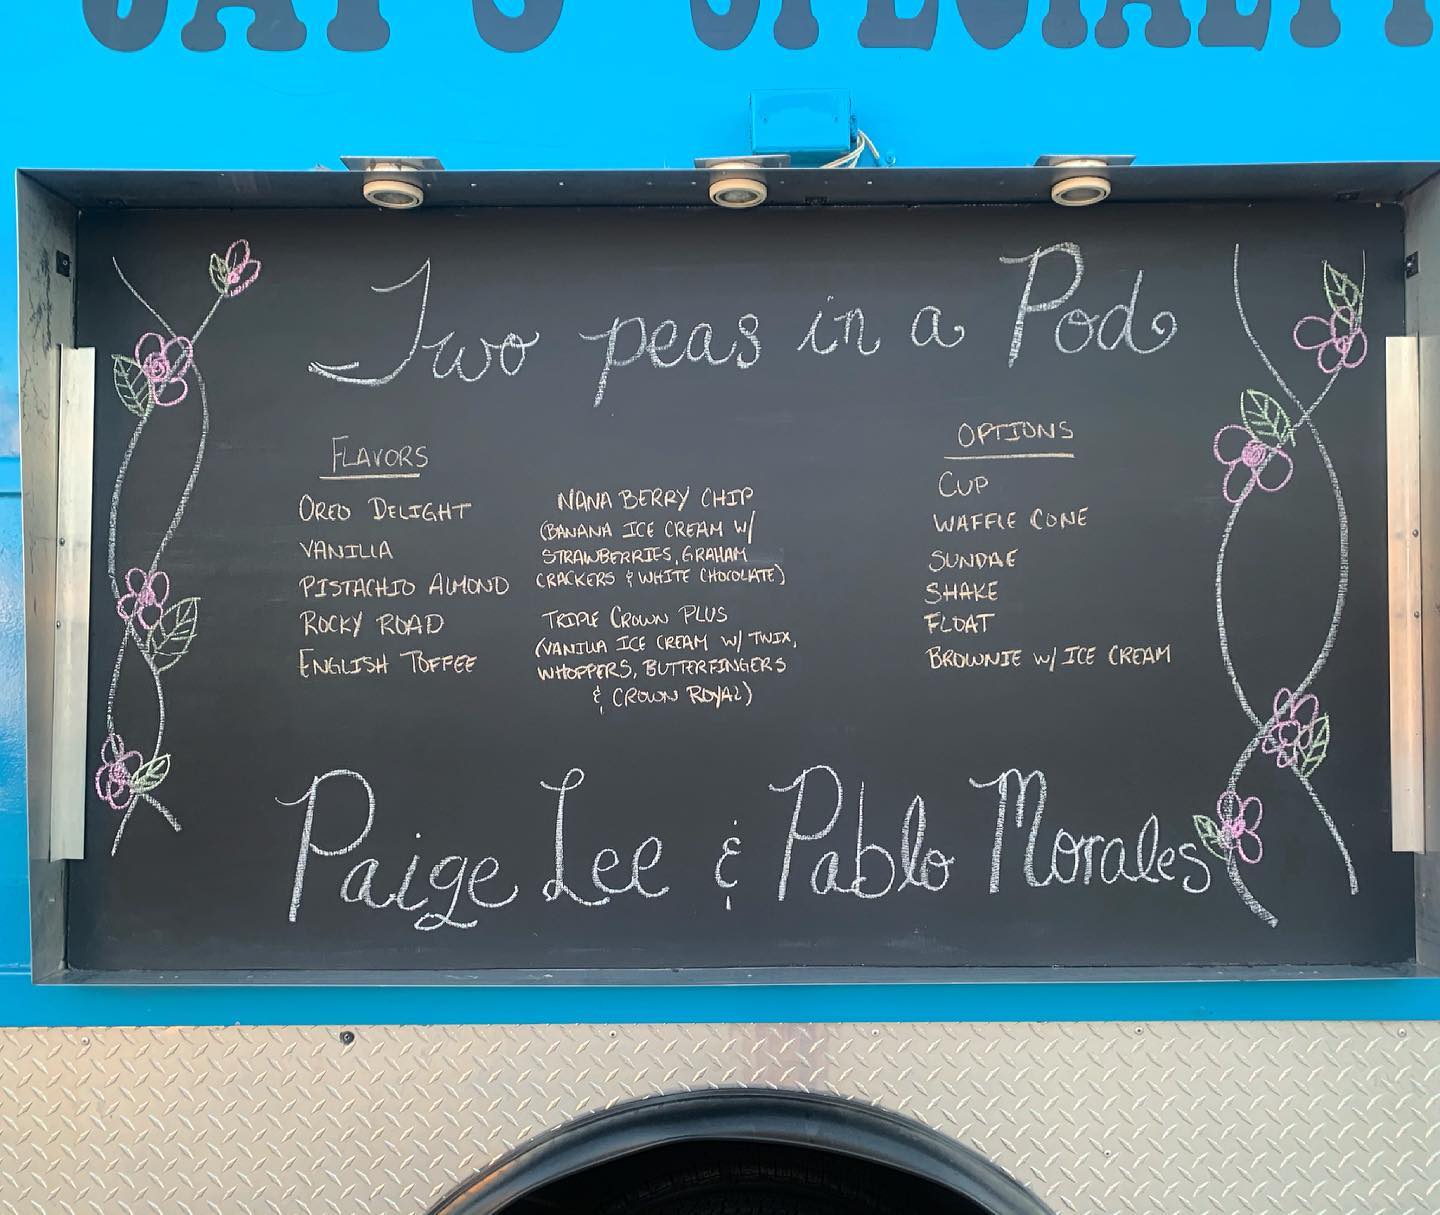 JAY'S SPECIALTY
Two peas in a Pod
FLAVORS
OREO DELIGHT
VANILLA
PISTACHIO ALMOND
ROCKY ROAD
ENGLISH TOFFEE
NANA BERRY CHIP
(BANANA ICE CREAM W/
STRAWBERRIES, GRAHAM
CRACKERS & WHITE CHOCOLATE)
TRIPLE CROWN PLUS
(VANILLA ICE CREAM W/ TWIX,
WHOPPERS, BUTTERFINGERS
& CROWN ROYAL)
OPTIONS
CUP
WAFFLE CONE
SUNDAE
SHAKE
FLOAT
BROWNIE W/ ICE CREAM
Paige Lee & Pablo Morales